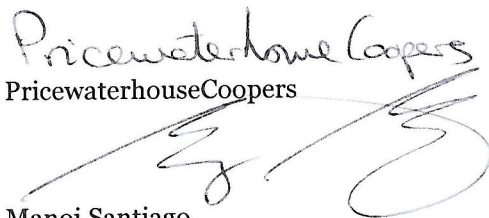 PricewaterhouseCoopers
PricewaterhouseCoopers
Manoj Santiago